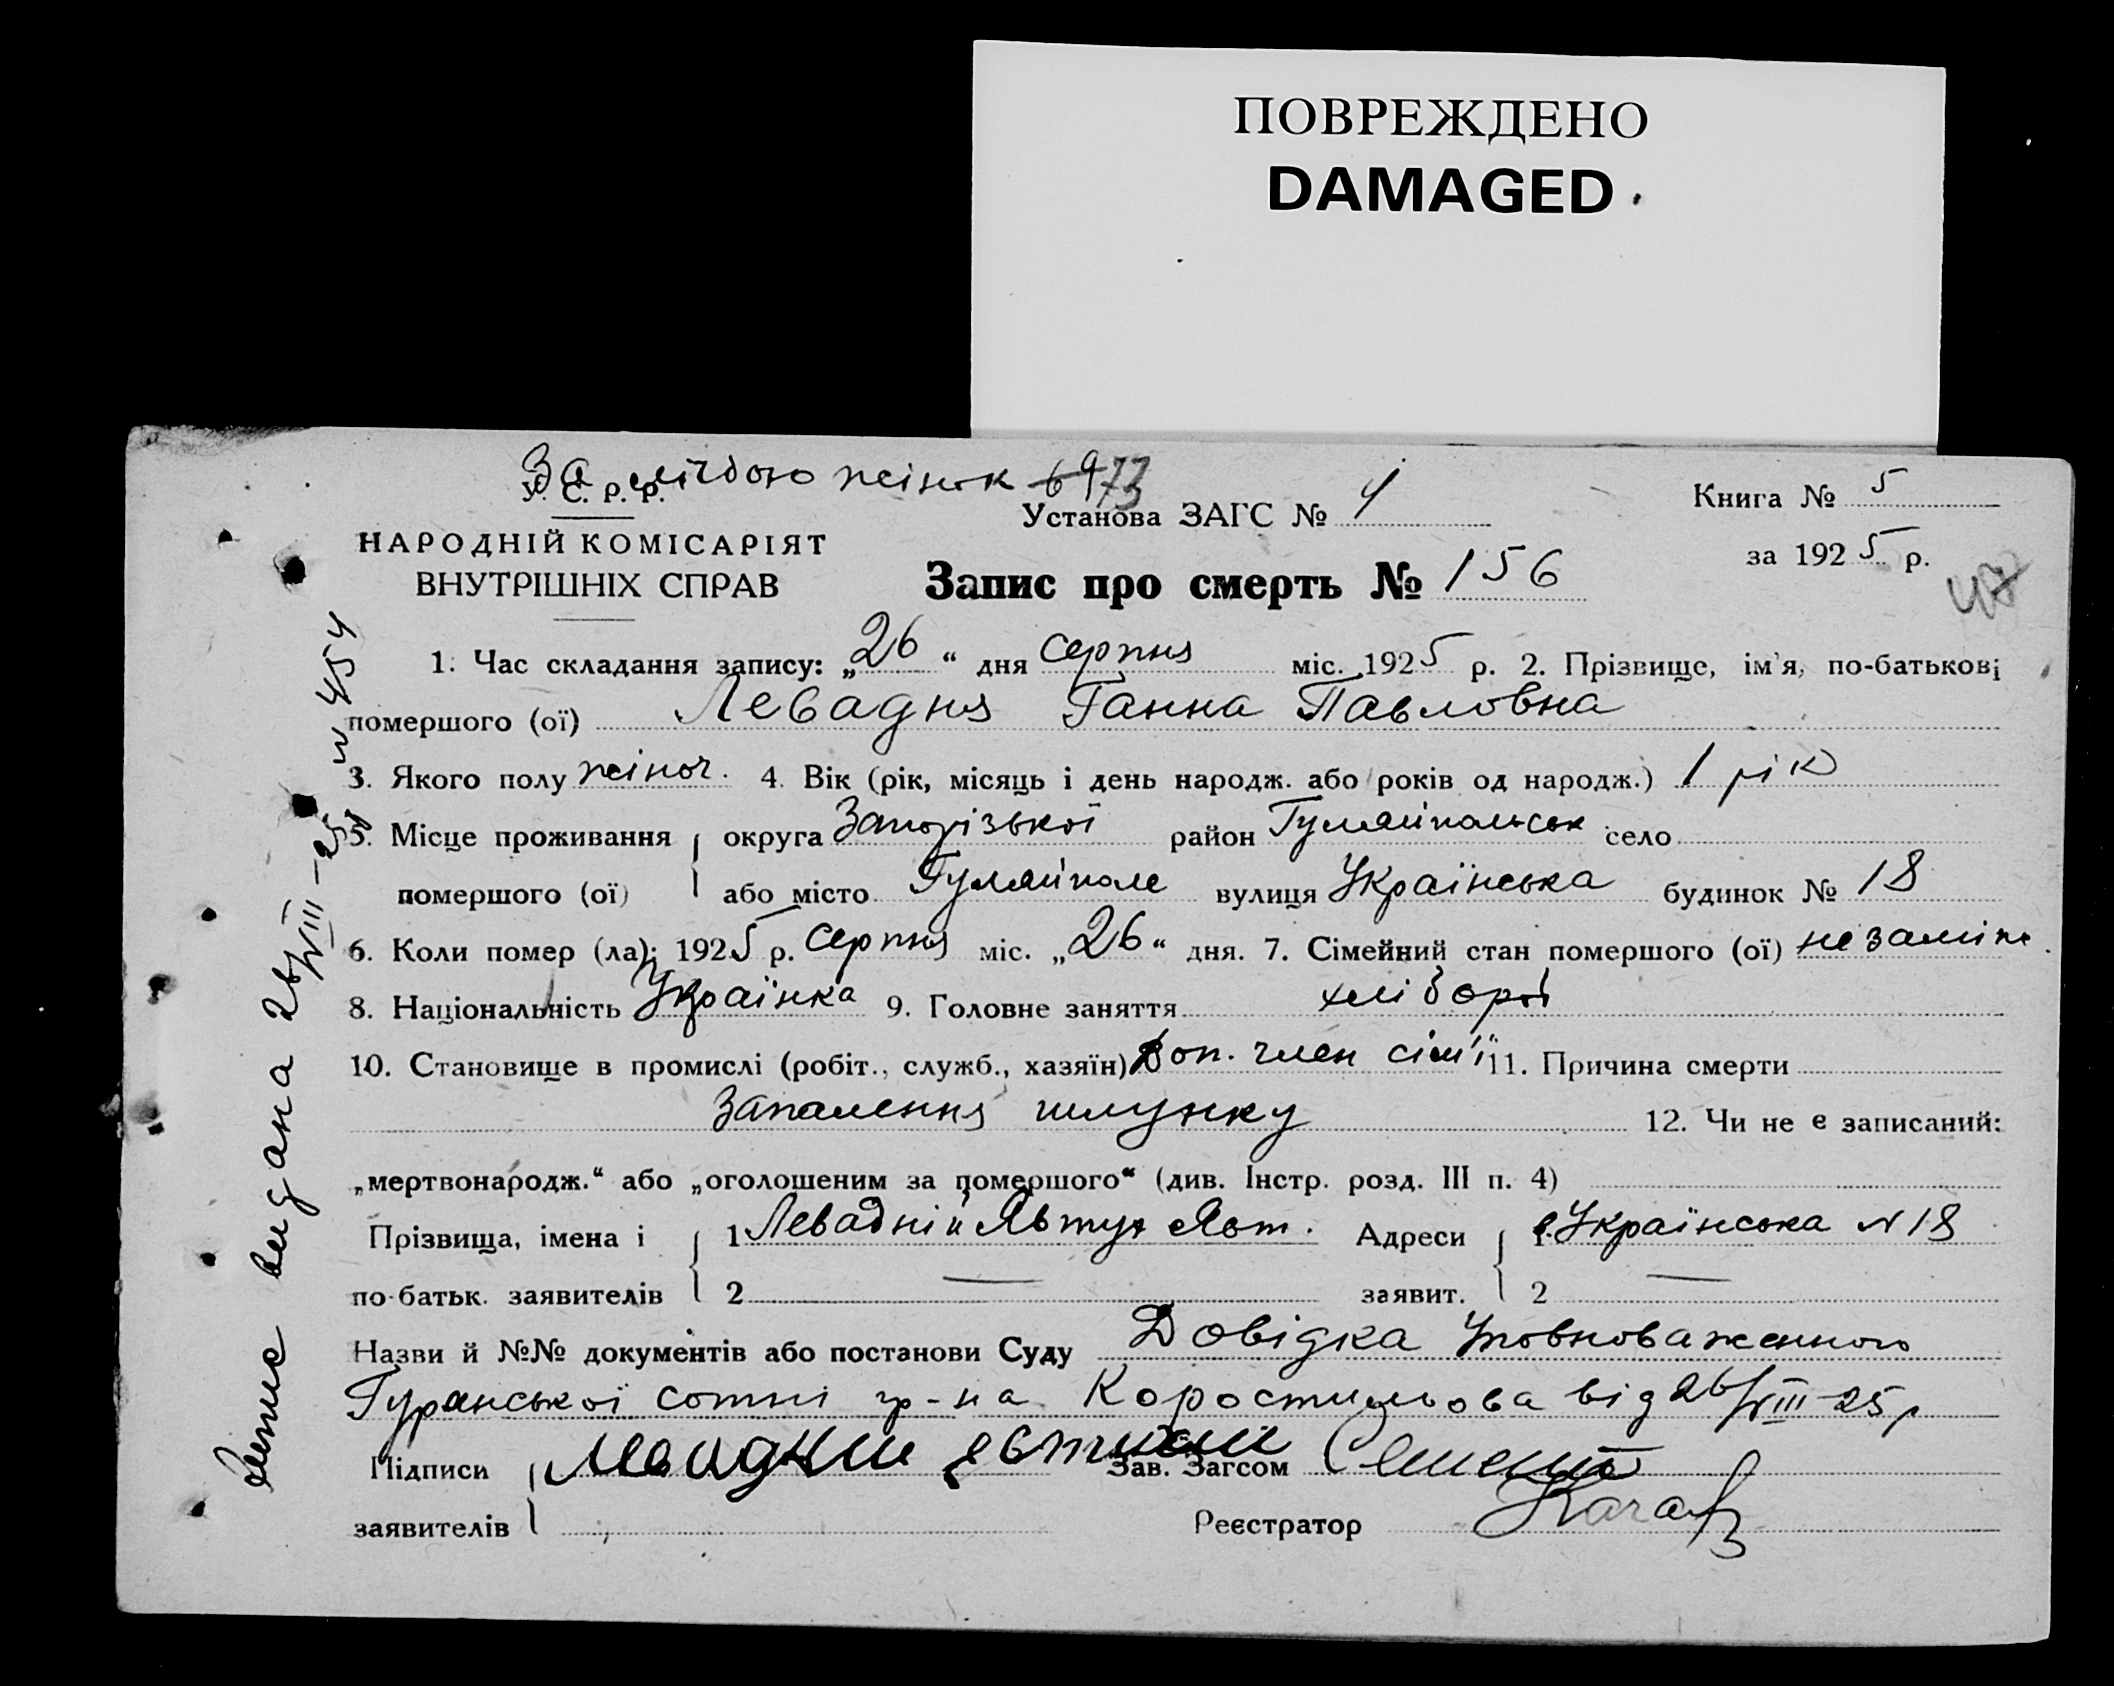 ПОВРЕЖДЕНО
DAMAGED
За лічбою жінок 69 73
У. С. Р. Р.
Установа ЗАГС № 4
Книга № 5
НАРОДНІЙ КОМІСАРІЯТ
ВНУТРІШНІХ СПРАВ
за 1925 р.
Запис про смерть № 156
47
1. Час складання запису: „26“ дня серпня міс. 1925 р. 2. Прізвище, ім'я, по-батькові
помершого (ої) Левадня Ганна Павловна
3. Якого полу жіноч. 4. Вік (рік, місяць і день народж. або років од народж.) 1 рік
5. Місце проживання округа Запорізької район Гуляйпольськ село
помершого (ої) або місто Гуляйполе вулиця Українська будинок № 18
6. Коли помер (ла): 1925 р. серпня міс. „26“ дня. 7. Сімейний стан помершого (ої) незаміжн.
8. Національність Українка 9. Головне заняття хлібороб
10. Становище в промислі (робіт., служб., хазяїн) Доп. член сім'ї 11. Причина смерти
Запалення шлунку 12. Чи не є записаний:
„мертвонародж.“ або „оголошеним за помершого“ (див. Інстр. розд. III п. 4)
Прізвища, імена і 1 Левадній Явтух Явт. Адреси 1 Українська № 18
по-батьк. заявителів 2 — заявит. 2 —
Назви й №№ документів або постанови Суду Довідка Уповноваженного
Гуранської сотні гр-на Коростильова від 26/VIII-25 р
Підписи Зав. Загсом
заявителів Реєстратор
Випис видана 26/VIII-25 р № 454